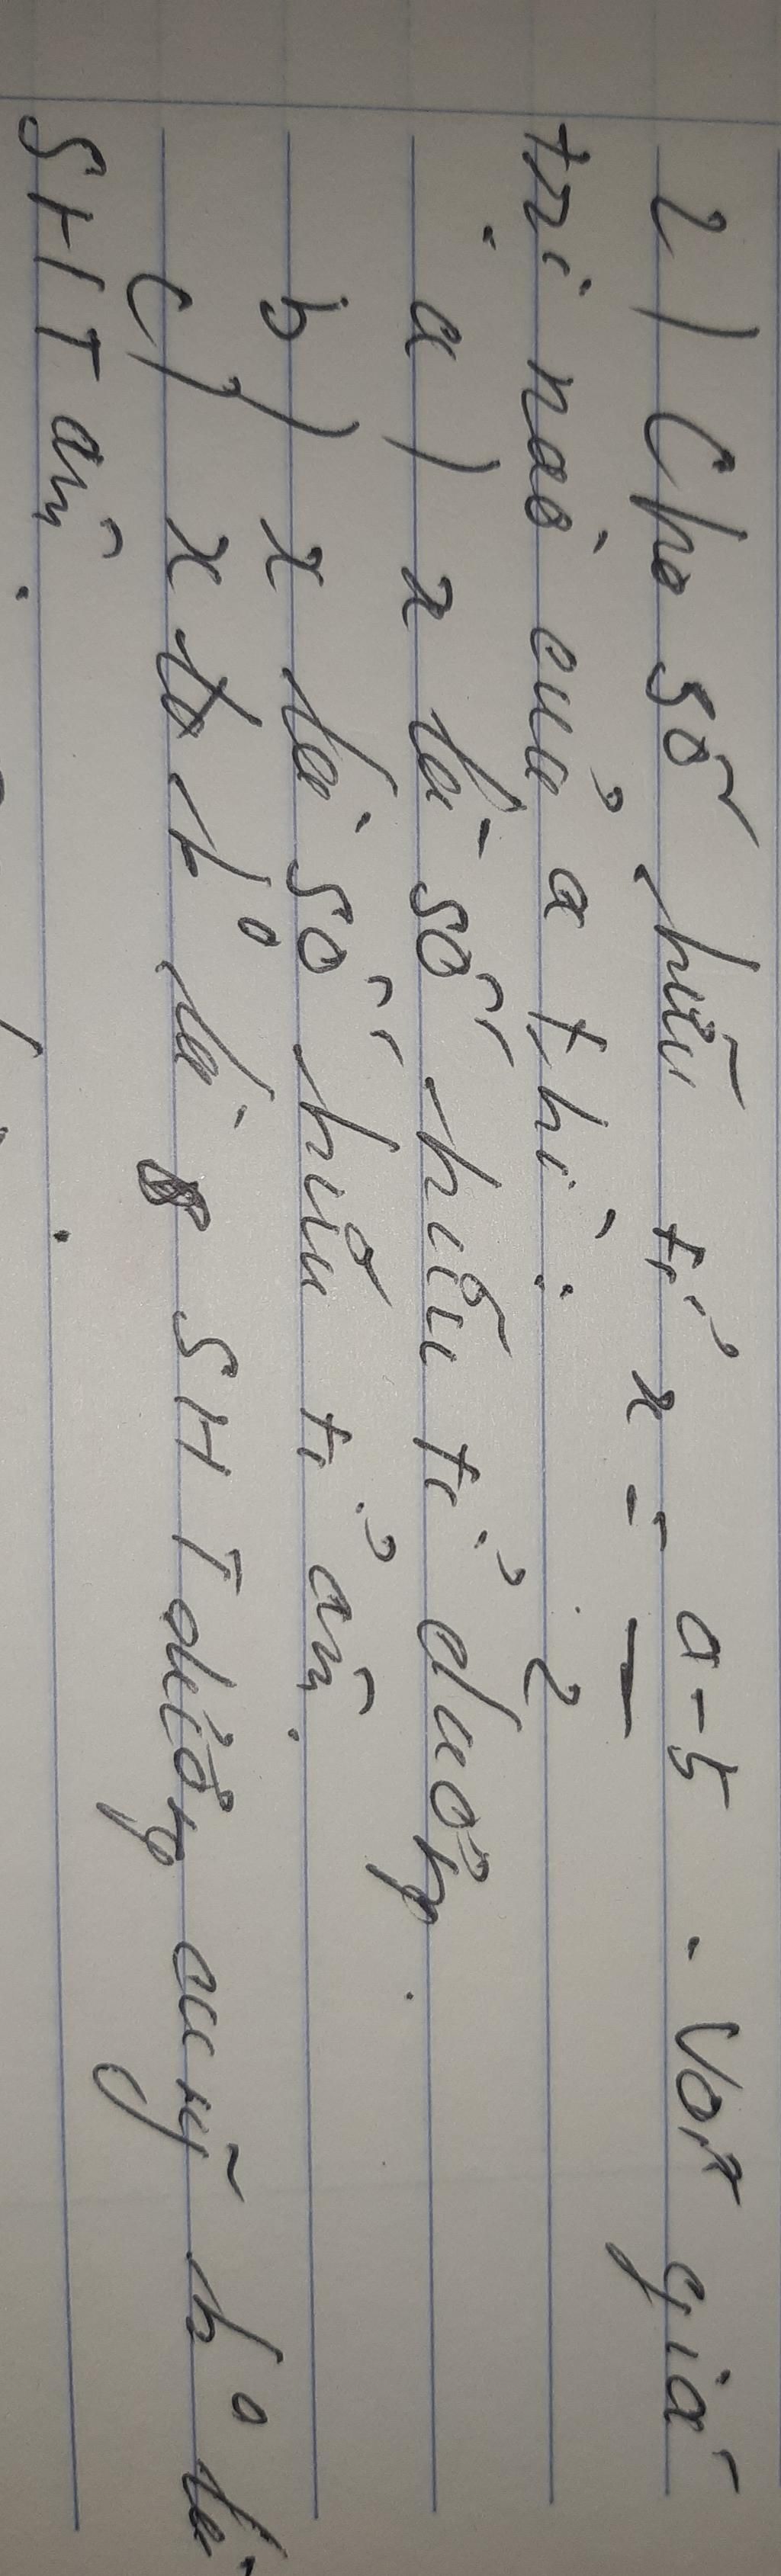 2) Cho số hữu tỉ x = a-5 . Với giá
2
trị nào của a thì:
a) x là số hữu tỉ dương.
b) x là số hữu tỉ âm.
c) x k° là SHT dương cũng k° là
SHT âm.